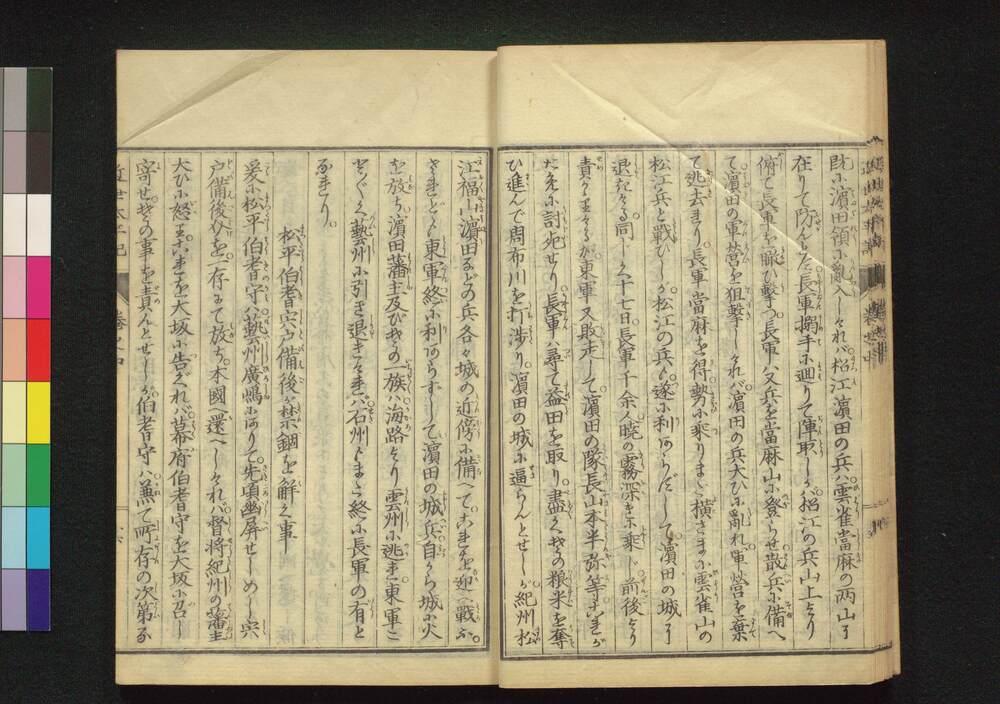 財に濱田領に亂入しければ松江濱田の兵ハ雲雀當麻の両山に
在りて防んとす長軍搦手に廻りて陣取しが松江の兵山上より
俯て長軍を眺ひ撃つ長軍ハ又兵を當麻山に登らせ散兵に備へ
て濱田の軍営を狙撃しければ濱田の兵大ひに亂れ軍営を棄
て逃去まり長軍當麻を得勢に乘りまた横さまに雲雀山の
松江兵と戰ひしが松江の兵も遂に利あらずして濱田の城に
退きける同じく十七日長軍千余人曉の霧深きに乘じ前後より
責かゝりけるが東軍又敗走して濱田の隊長山本半弥等これが
ために討死せり長軍ハ尋て益田を取り盡く其の粮米を奪
ひ進んで周布川を打渉り濱田の城に逼らんとせしが紀州松
江福山濱田などの兵各々城の近傍に備へてこれを迎へ戰ふ
されども東軍終に利あらずして濱田の城兵自から城に火
を放ち濱田藩主及び其の一族ハ海路より雲州に逃れ東軍こ
とごとく藝州に引き退きければ石州もまた終に長軍の有と
なれり
松平伯耆宍戸備後が禁錮を解く事
爰に松平伯耆守ハ藝州廣嶋にありて先頃幽屏せしめし宍
戸備後介を一存にて放ち本國へ還へしければ督將紀州の藩主
大ひに怒りこれを大坂に告ぐれバ幕府伯耆守を大坂に召し
寄せ其の事を責んとせしが伯耆守ハ兼て所存の次第な
近世太平記
巻之四